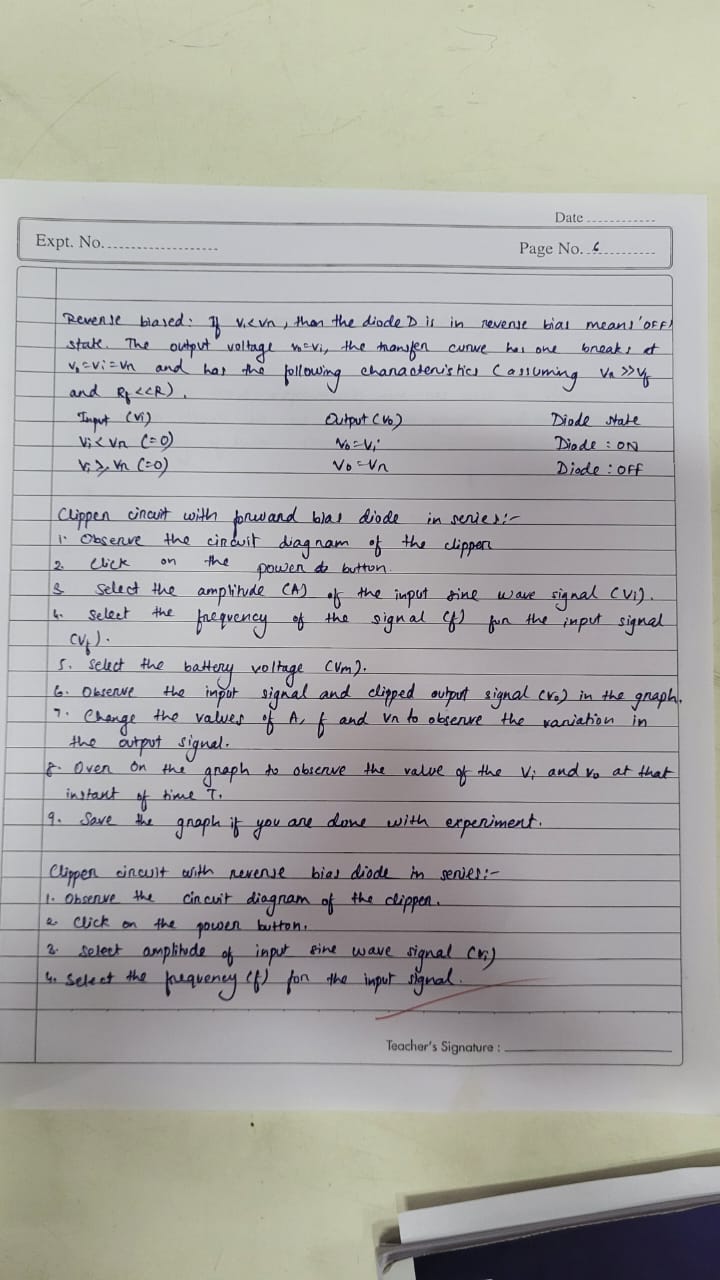 Date
Expt. No.
Page No. 6
Reverse biased: If Vi<Vr, then the diode D is in reverse bias means 'OFF'
state. The output voltage vo=vi, the transfer curve has one breaks at
Vo=Vi=Vr and has the following characteristics (assuming VR>>Vf
and Rf<<R).
Input (Vi) Output (Vo) Diode state
Vi<Vr (=0) Vo=Vi Diode : ON
Vi≥Vr (=0) Vo=Vr Diode : OFF
Clipper circuit with forward bias diode in series:-
1. Observe the circuit diagram of the clipper
2. Click on the power button.
3. Select the amplitude (A) of the input sine wave signal (Vi).
4. Select the frequency of the signal (f) for the input signal
(Vf).
5. Select the battery voltage (Vm).
6. Observe the input signal and clipped output signal (Vo) in the graph.
7. Change the values of A, f and Vr to observe the variation in
the output signal.
8. Over on the graph to observe the value of the Vi and Vo at that
instant of time T.
9. Save the graph if you are done with experiment.
Clipper circuit with reverse bias diode in series:-
1. Observe the circuit diagram of the clipper.
2. Click on the power button.
3. Select amplitude of input sine wave signal (Vi)
4. Select the frequency (f) for the input signal.
Teacher's Signature :